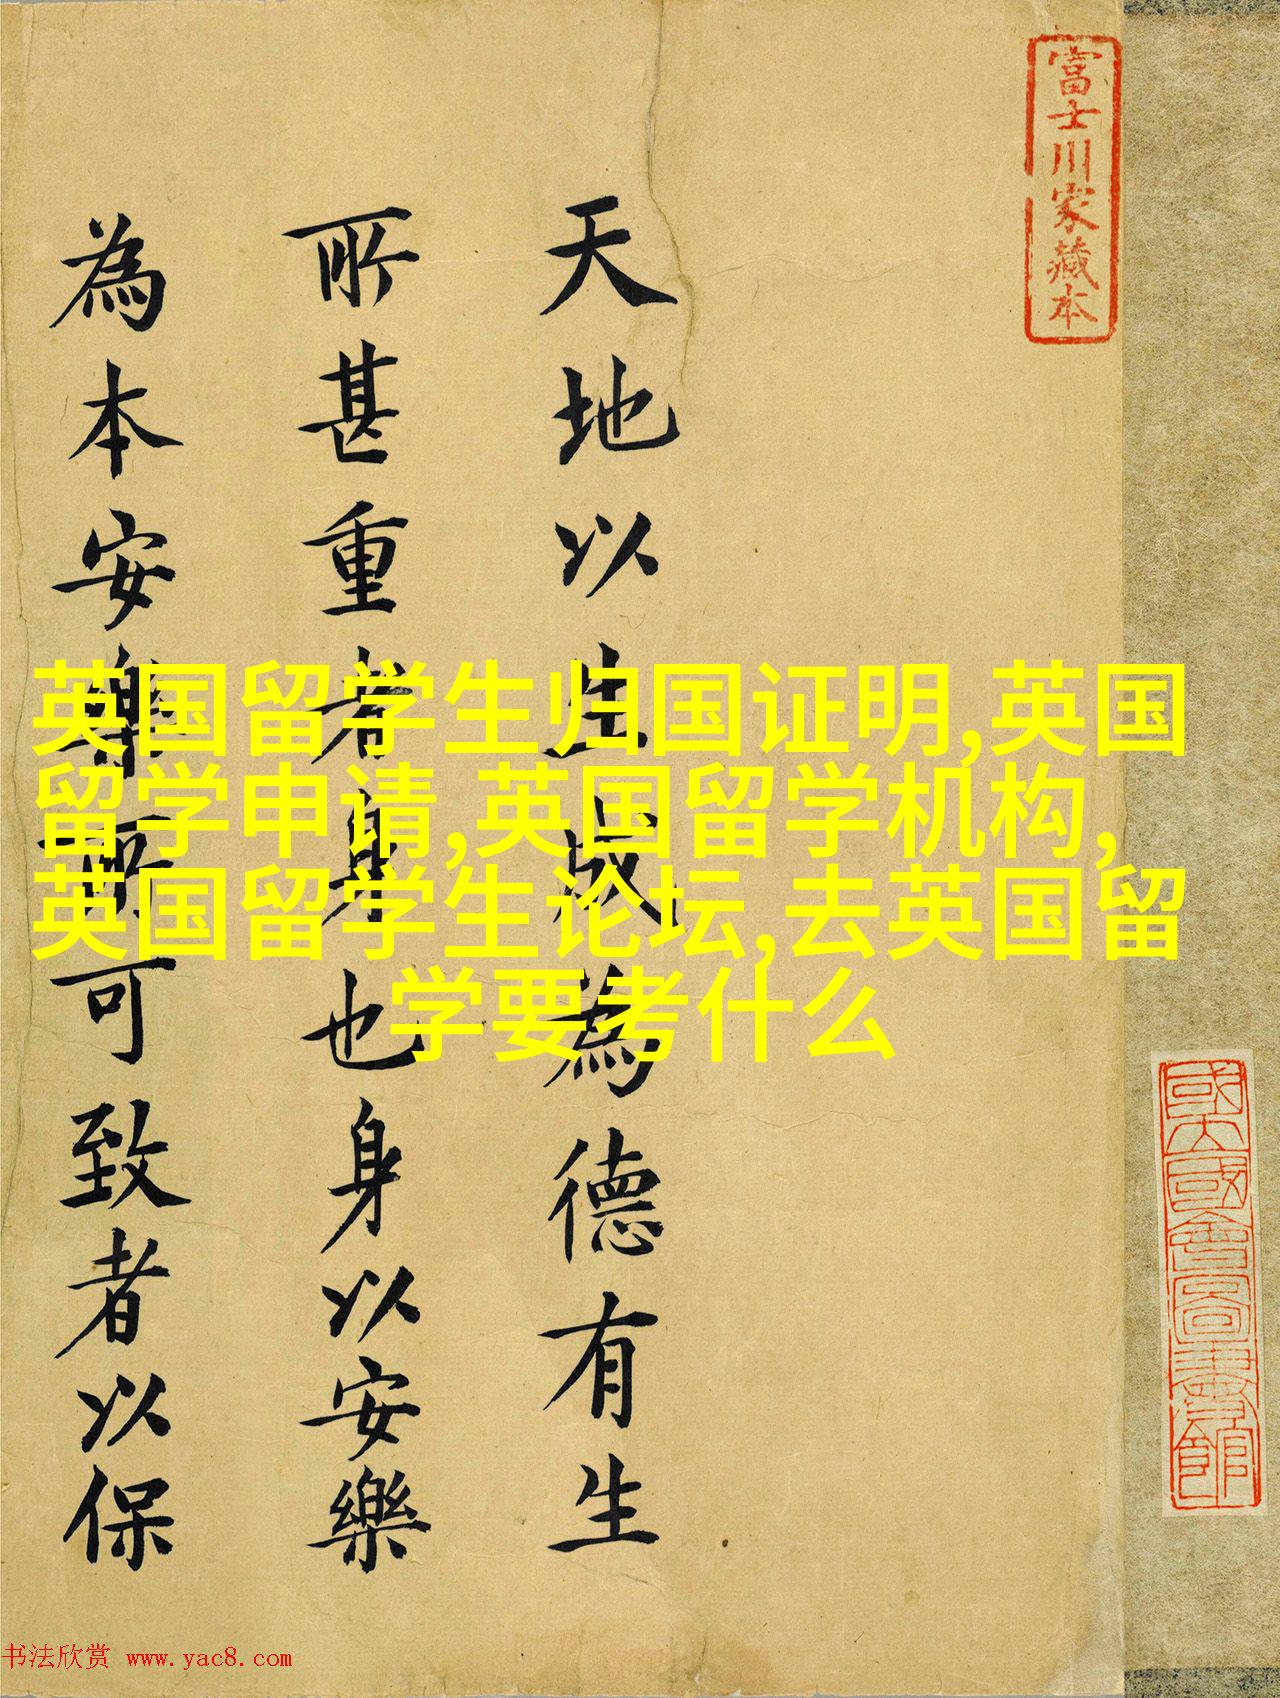 富士川家藏本
天地以生成為德有生
所甚重者身也身以安樂
為本安樂所可致者以保
英国留学生归国证明,英国
留学申请,英国留学机构,
英国留学生论坛,去英国留
学要考什么
國立國會圖書館
书法欣赏 www.yac8.com